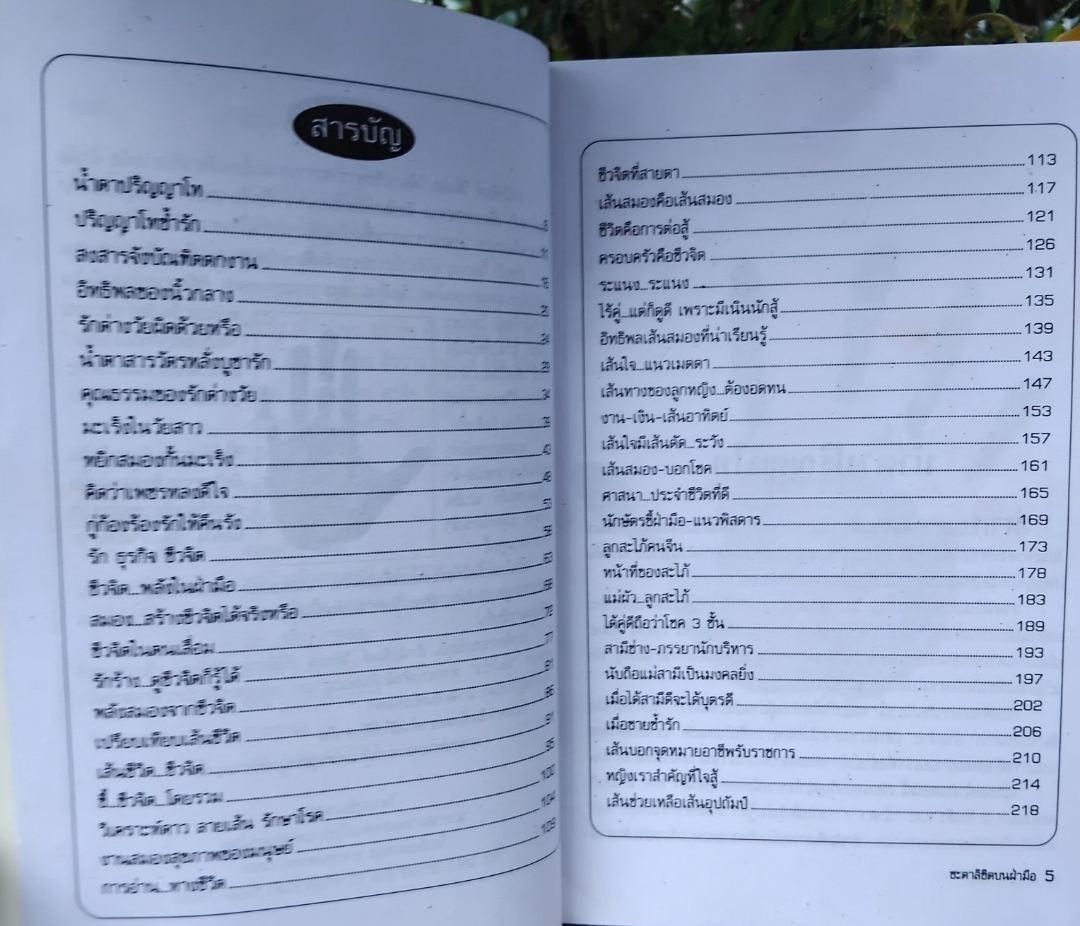 สารบัญ
น้ำตาปริญญาโท
ปริญญาโทช้ำรัก
สงสารจังบัณฑิตตกงาน
อิทธิพลของนิ้วกลาง
รักต่างวัยผิดด้วยหรือ
น้ำตาสารวัตรหลั่งบูชารัก
คุณธรรมของรักต่างวัย
มะเร็งในวัยสาว
หยิกสมองกั้นมะเร็ง
คิดว่าเพชรหลงดีใจ
กู่ก้องร้องรักให้คืนรัง
รัก ธุรกิจ ชีวจิต
ชีวจิต...พลังในฝ่ามือ
สมอง...สร้างชีวจิตได้จริงหรือ
ชีวจิตในตนเสื่อม 77
รักร้าง...ดูชีวจิตก็รู้ได้ 81
พลังสมองจากชีวจิต 86
เปรียบเทียบเส้นชีวิต 91
เส้นชีวิต...ชีวจิต 95
ชี้...ชีวจิต...โดยรวม 100
วิเคราะห์ดาว ลายเส้น รักษาโรค 104
งานสมองสุขภาพของมนุษย์ 109
การอ่าน...ทางชีวิต
ชีวจิตที่สายตา 113
เส้นสมองคือเส้นสมอง 117
ชีวิตคือการต่อสู้ 121
ครอบครัวคือชีวจิต 126
ระแนง...ระแนง 131
ไร้คู่...แต่ก็ดูดี เพราะมีเนินนักสู้ 135
อิทธิพลเส้นสมองที่น่าเรียนรู้ 139
เส้นใจ...แนวเมตตา 143
เส้นทางของลูกหญิง...ต้องอดทน 147
งาน-เงิน-เส้นอาทิตย์ 153
เส้นใจมีเส้นตัด...ระวัง 157
เส้นสมอง-บอกโชค 161
ศาสนา...ประจำชีวิตที่ดี 165
นักษัตรชี้ฝ่ามือ-แนวพิสดาร 169
ลูกสะใภ้คนจีน 173
หน้าที่ของสะใภ้ 178
แม่ผัว...ลูกสะใภ้ 183
ได้คู่ดีถือว่าโชค 3 ชั้น 189
สามีช่าง-ภรรยานักบริหาร 193
นับถือแม่สามีเป็นมงคลยิ่ง 197
เมื่อได้สามีดีจะได้บุตรดี 202
เมื่อชายช้ำรัก 206
เส้นบอกจุดหมายอาชีพรับราชการ 210
หญิงเราสำคัญที่ใจสู้ 214
เส้นช่วยเหลือเส้นอุปถัมป์ 218
ชะตาลิขิตบนฝ่ามือ 5